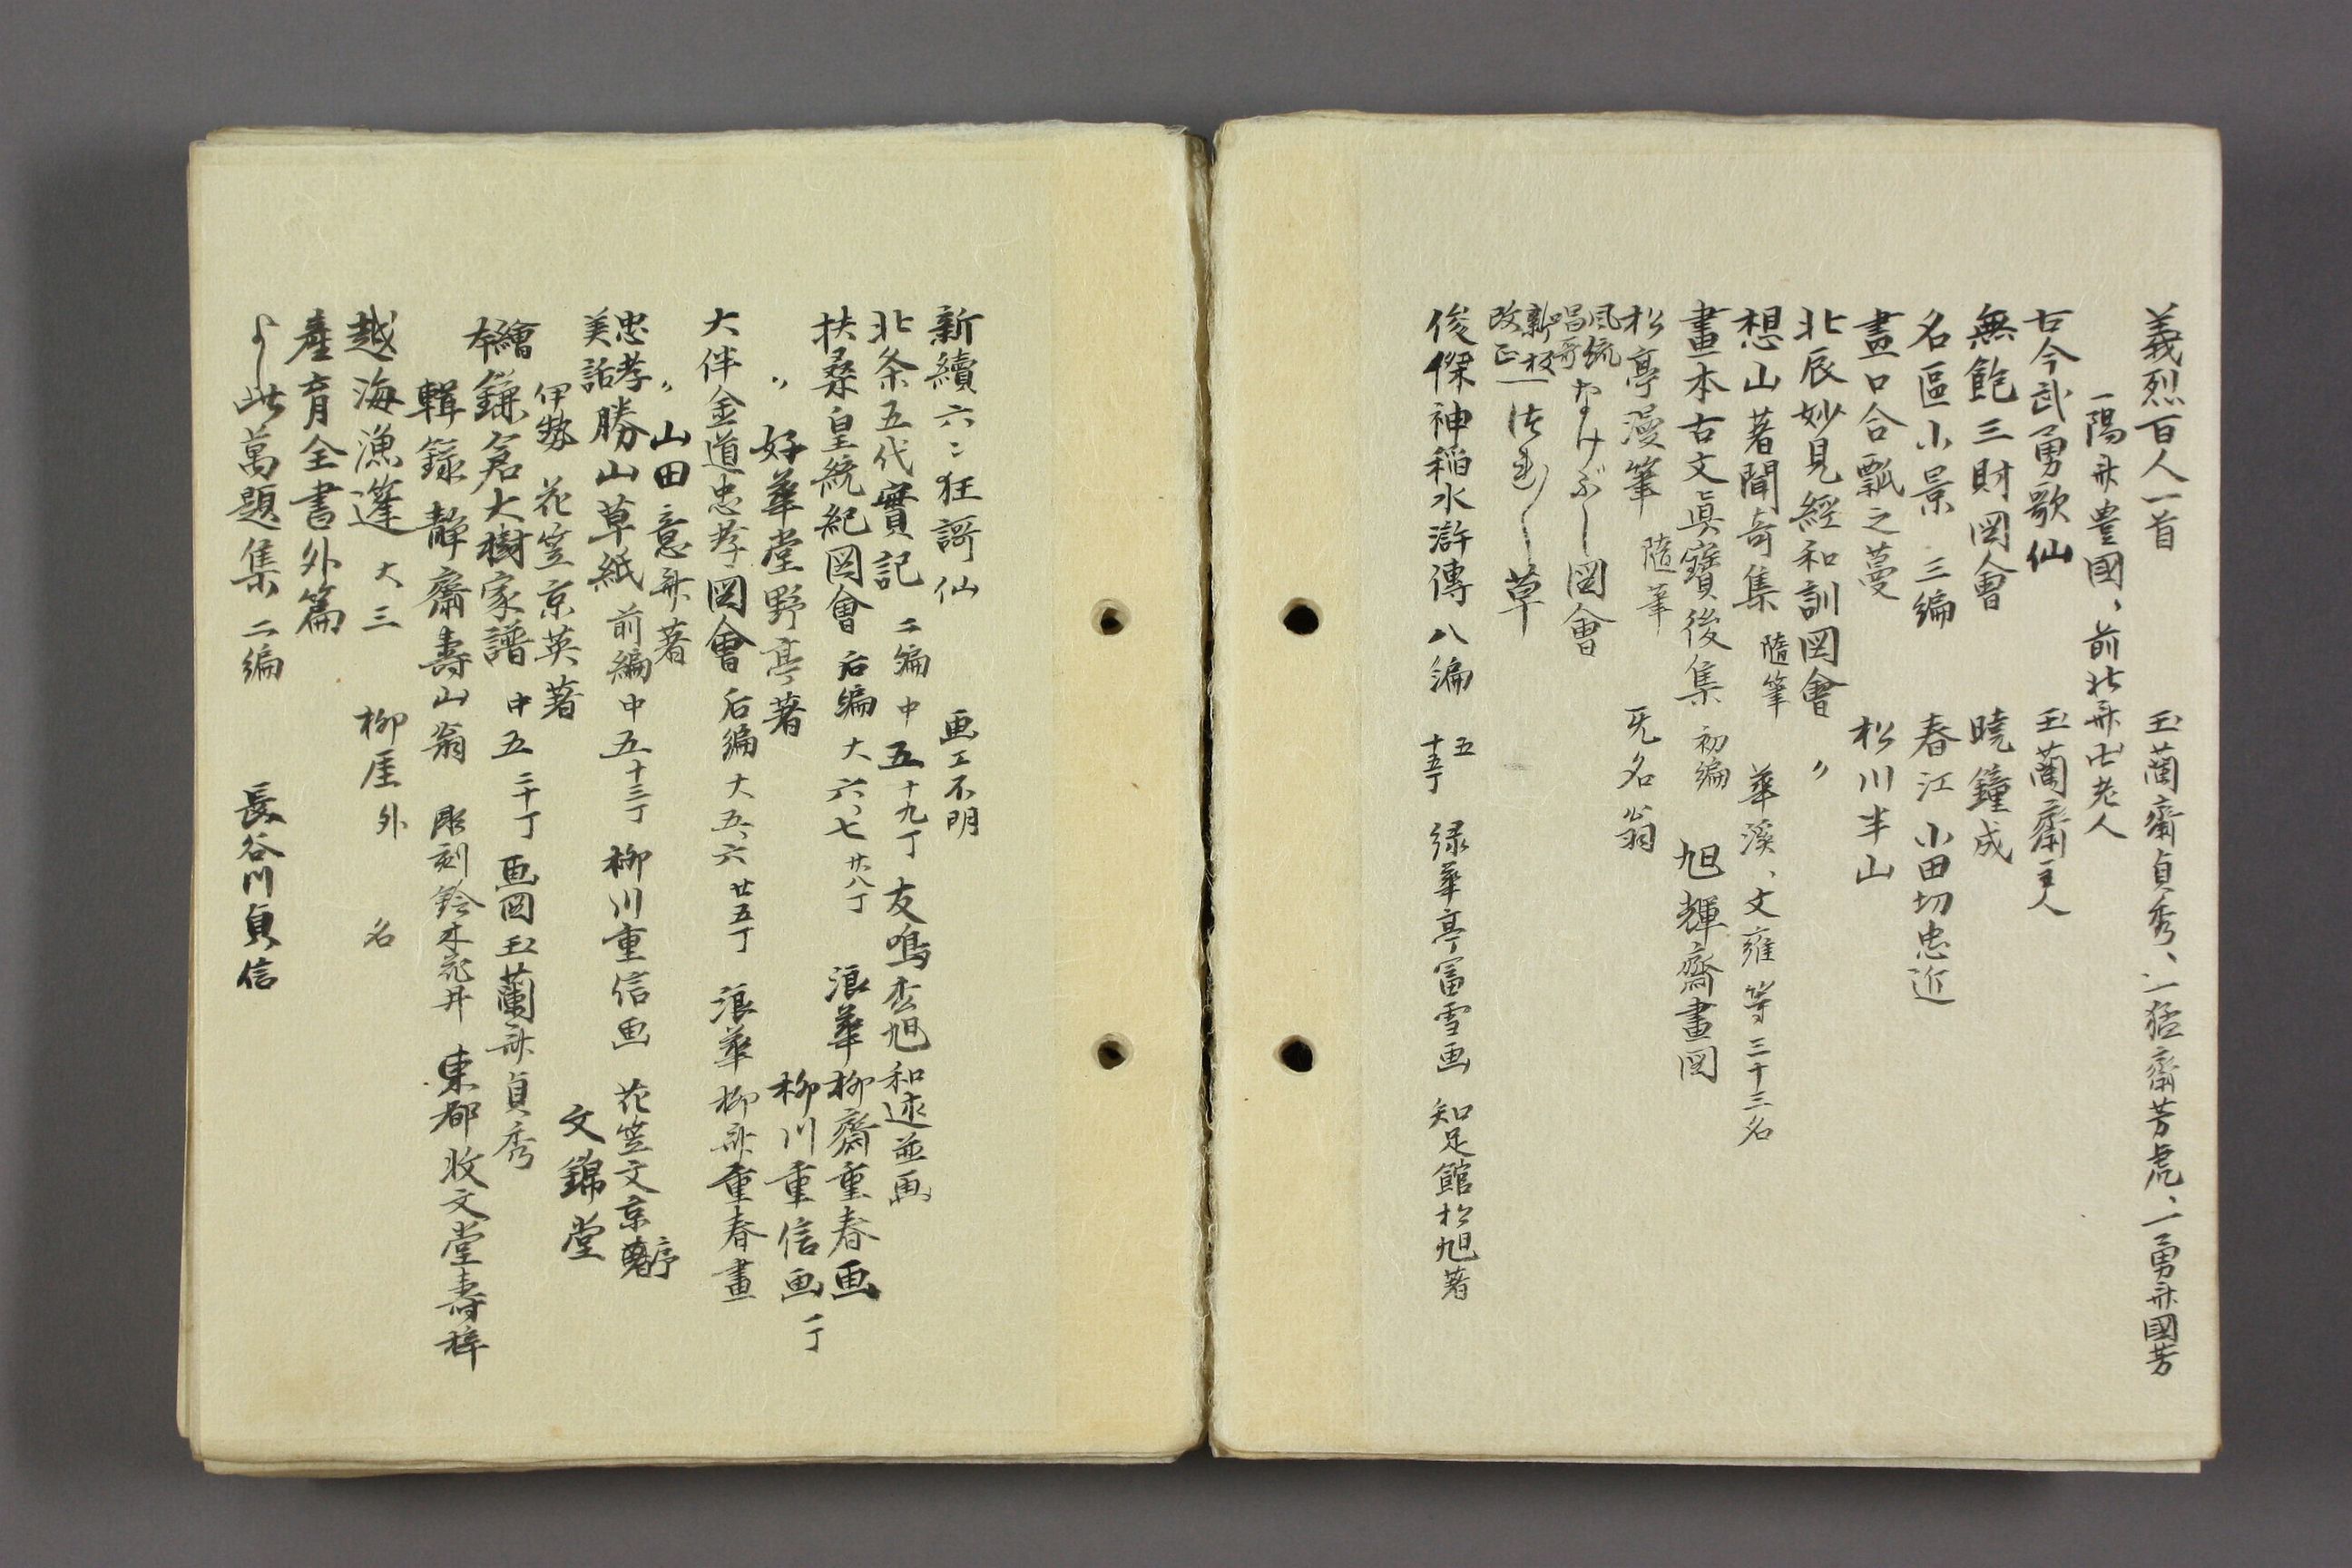 義烈百人一首 玉蘭齋貞秀、一猛齋芳虎、一勇斎國芳
一陽斎豊國、前北斎卍老人
古今武勇歌仙 玉蘭齋主人
無飽三財図會 曉鐘成
名區小景 三編 春江 小田切忠近
畫口合瓢之蔓 松川半山
北辰妙見經和訓図會 〃
想山著聞奇集 隨筆 華溪、文雍 等 三十三名
畫本古文眞寶後集 初編 旭輝齋畫図
松亭漫筆 隨筆 旡名翁
風流唱哥 なげぶし図會
新板改正 草
俊傑神稲水滸傳 八編 五 十五丁 緑華亭冨雪画 知足館松旭著
新續六〻狂謌仙 画工不明
北条五代實記 二編 中 五 十九丁 友鳴松旭和述並画
扶桑皇統紀図會 后編 大 六、七 廿八丁 浪華柳齋重春画
〃 好華堂野亭著 柳川重信画 一丁
大伴金道忠孝図會 后編 大 五、六 廿五丁 浪華柳斎重春畫
〃 山田意斎著
忠孝美話 勝山草紙 前編 中 五 十三丁 柳川重信画 花笠文京 序
伊勢 花笠京英著 文錦堂
繪本鎌倉大樹家譜 中 五 二十丁 画図玉蘭斎貞秀
輯録 静齋壽山翁 彫刻 鈴木 東都 牧文堂壽梓
越海漁蓬 大 三 柳厓 外 名
産育全書外篇
よし此萬題集 二編 長谷川貞信